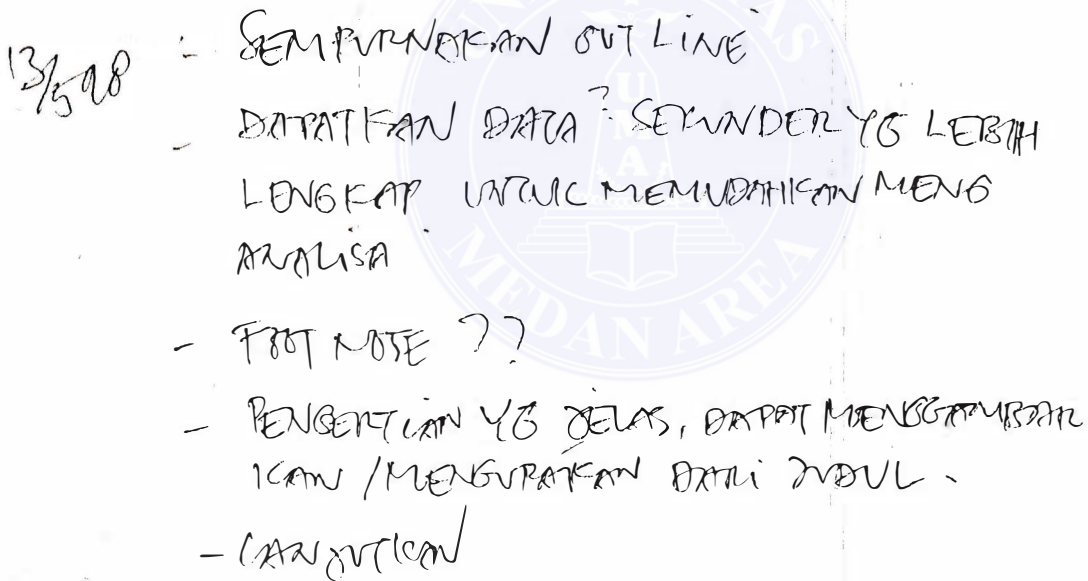 13/5 98 - SEMPURNAKAN OUT LINE
- DAPATKAN DATA² SEKUNDER YG LEBIH
LENGKAP UNTUK MEMUDAHKAN MENG
ANALISA
- FOOT NOTE ??
- PENGERTIAN YG JELAS, DAPAT MENGGAMBAR
KAN / MENGURAIKAN DARI JUDUL.
- LANJUTKAN
UMA
MEDAN AREA